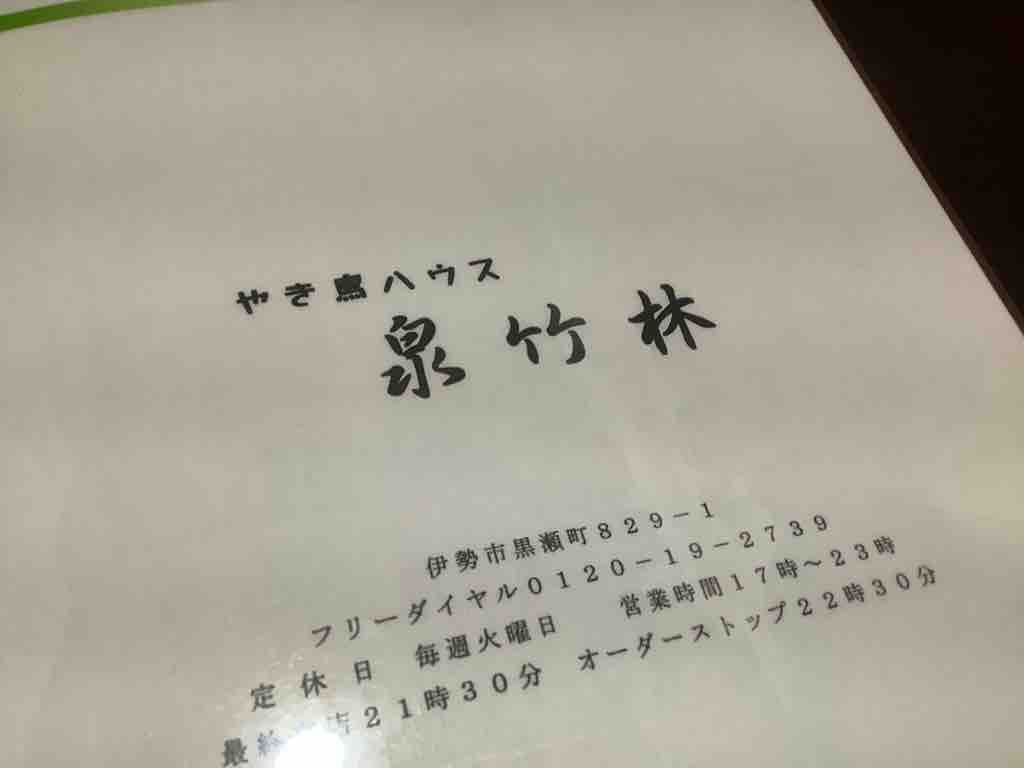 やき鳥ハウス
泉竹林
伊勢市黒瀬町829-1
フリーダイヤル0120-19-2739
定休日 毎週火曜日 営業時間17時～23時
最終 店21時30分 オーダーストップ22時30分